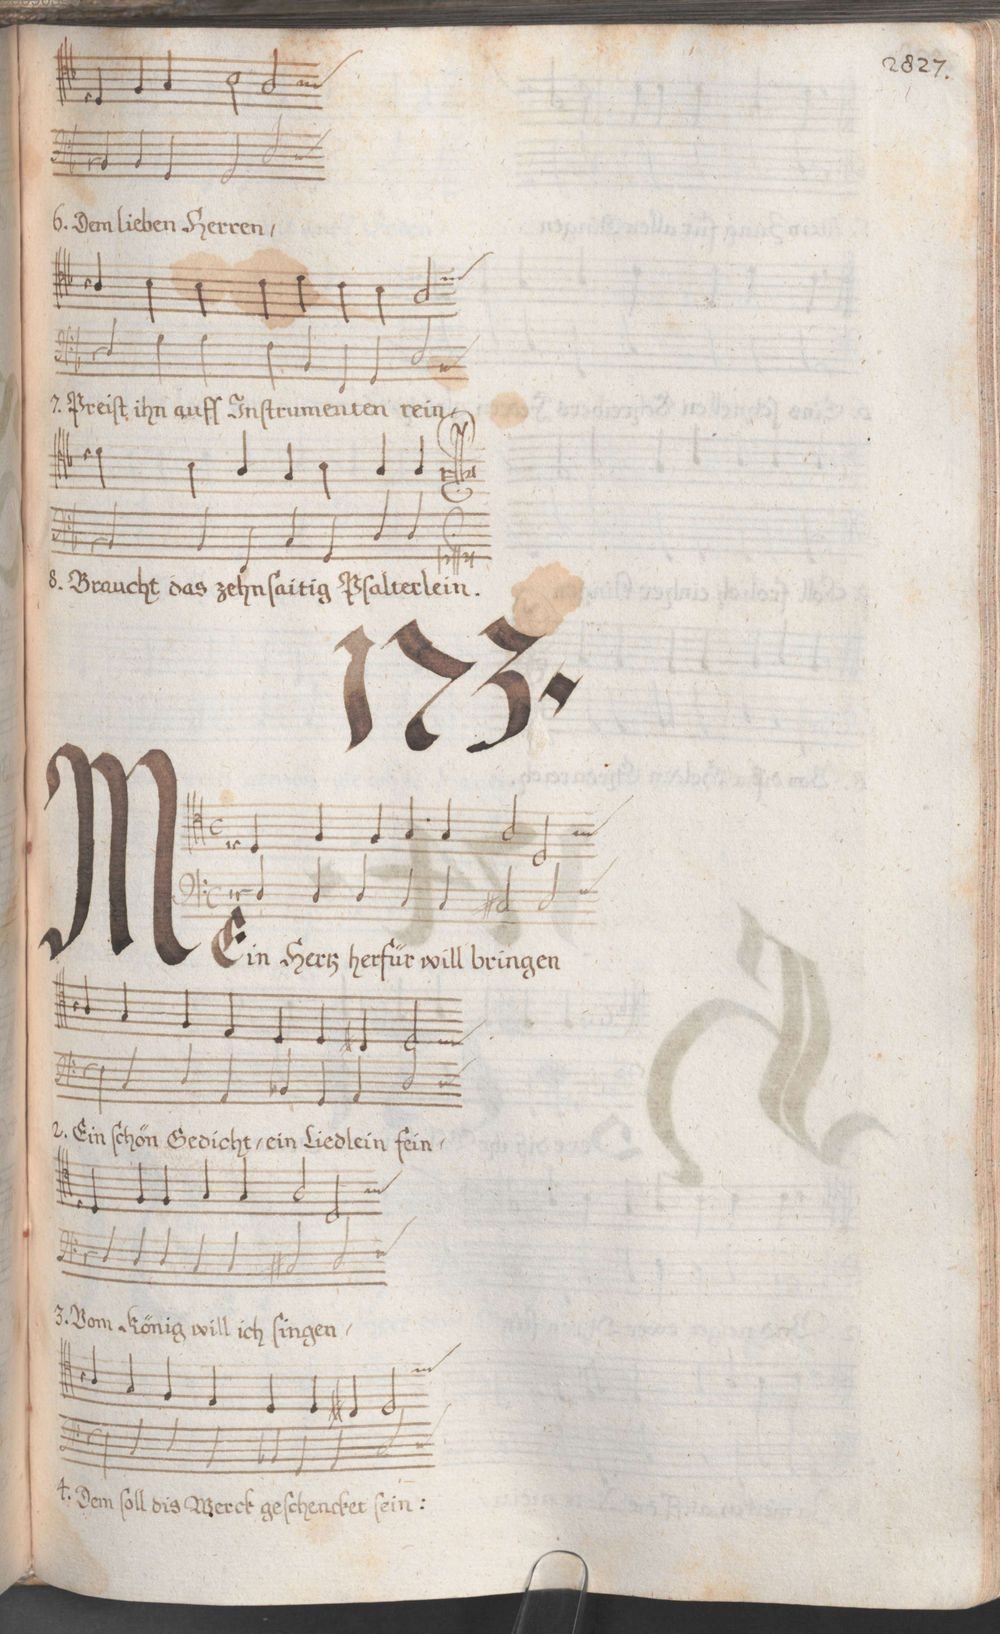 2827.
6. Dem lieben Herren,
7. Preist ihn auff Instrumenten rein,
8. Braucht das zehnsaitig Psalterlein.
173.
MEin Hertz herfür will bringen
2. Ein schön Gedicht, ein Liedlein fein,
3. Vom König will ich singen,
4. Dem soll dis Werck geschencket sein: